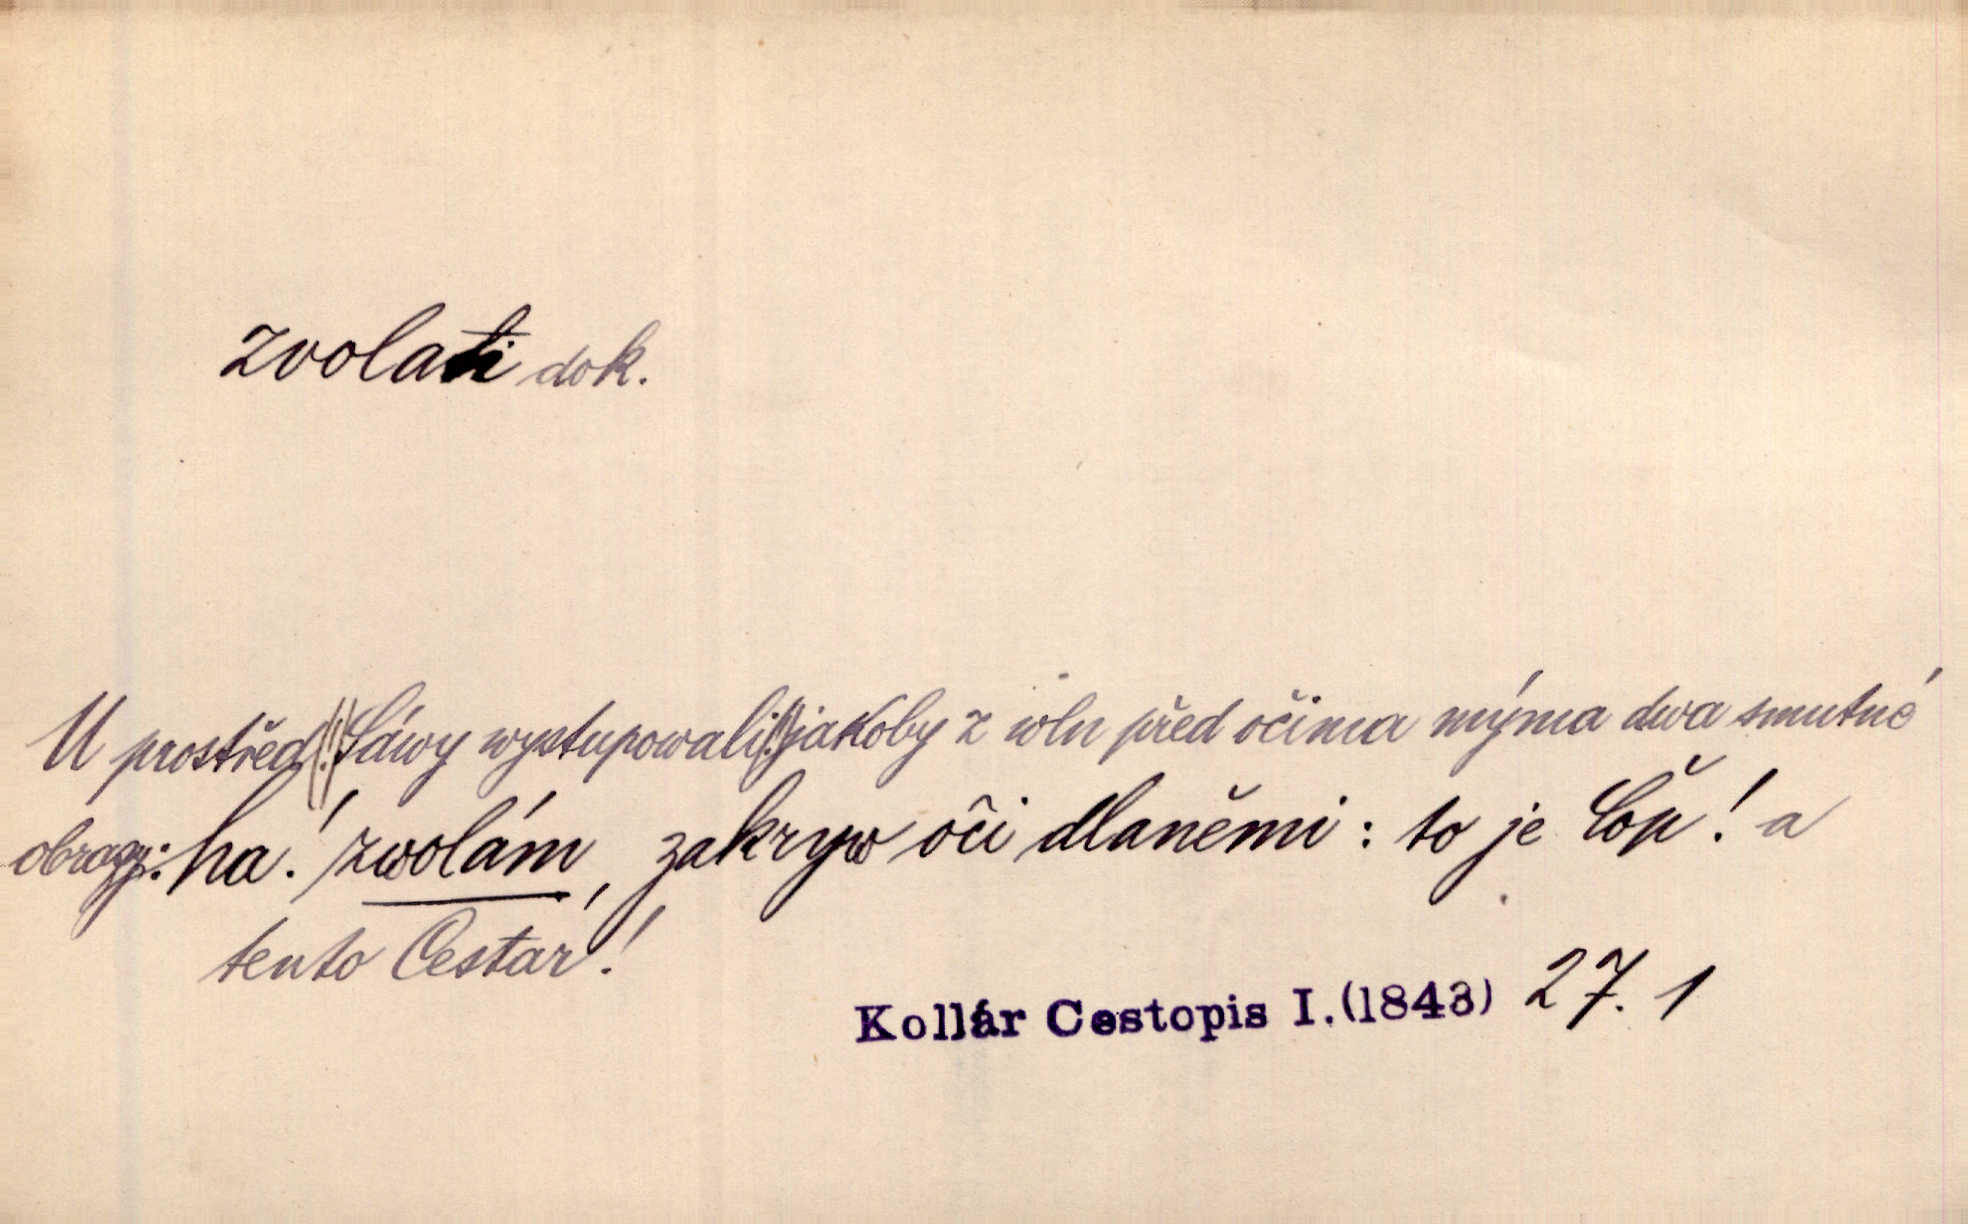 zvolati dok.
U prostřed (!) Sáwy wystupowali (!) jakoby z wln před očima mýma dwa smutné
obrazy: ha! zwolám, zakryw oči dlaněmi: to je Čop! a
tento Cestář!
Kollár Cestopis I.(1843) 27. 1